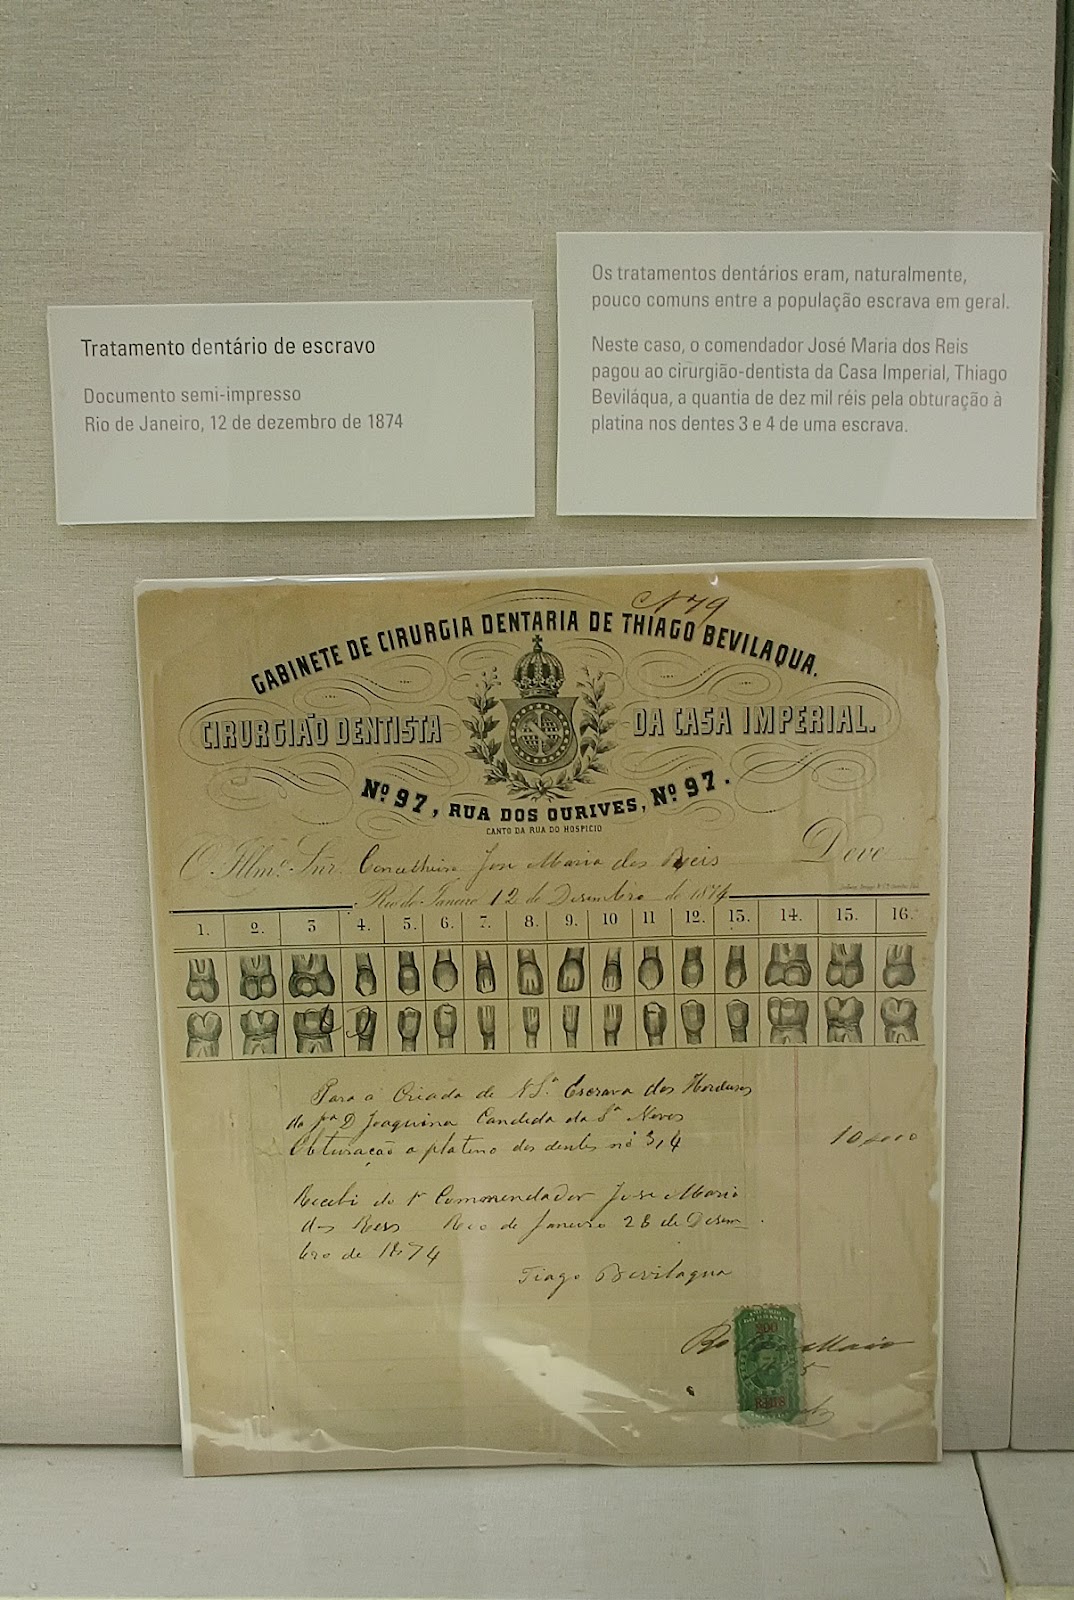 Tratamento dentário de escravo
Documento semi-impresso
Rio de Janeiro, 12 de dezembro de 1874
Os tratamentos dentários eram, naturalmente,
pouco comuns entre a população escrava em geral.
Neste caso, o comendador José Maria dos Reis
pagou ao cirurgião-dentista da Casa Imperial, Thiago
Beviláqua, a quantia de dez mil réis pela obturação à
platina nos dentes 3 e 4 de uma escrava.
Nº 79
GABINETE DE CIRURGIA DENTARIA DE THIAGO BEVILAQUA.
CIRURGIÃO DENTISTA DA CASA IMPERIAL.
Nº 97, RUA DOS OURIVES, Nº 97.
CANTO DA RUA DO HOSPICIO
O Illmº. Snr. Concelheiro Jose Maria dos Reis Deve
Rio de Janeiro 12 de Desembro de 1874
1. 2. 3 4. 5. 6. 7. 8. 9. 10 11 12. 13. 14. 15. 16.
Para a Criada de Escrava dos
D Joaquina Candida da Sª Neves
Obturação a platina dos dentes nº 3, 4 10$000
Recebi do Sr Commendador Jose Maria
dos Reis Rio de Janeiro 28 de Desem
bro de 1874
Tiago Bevilaqua
200
REIS